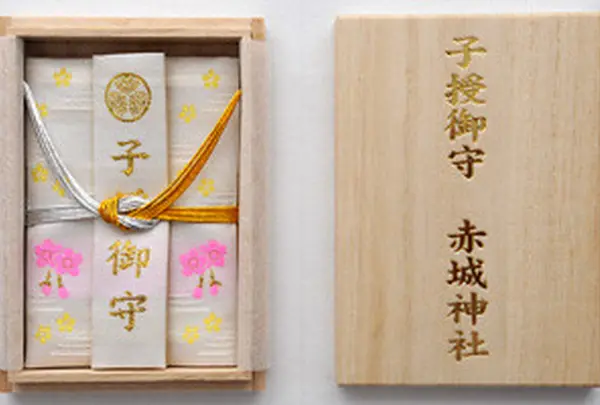 子授御守
子授御守 赤城神社